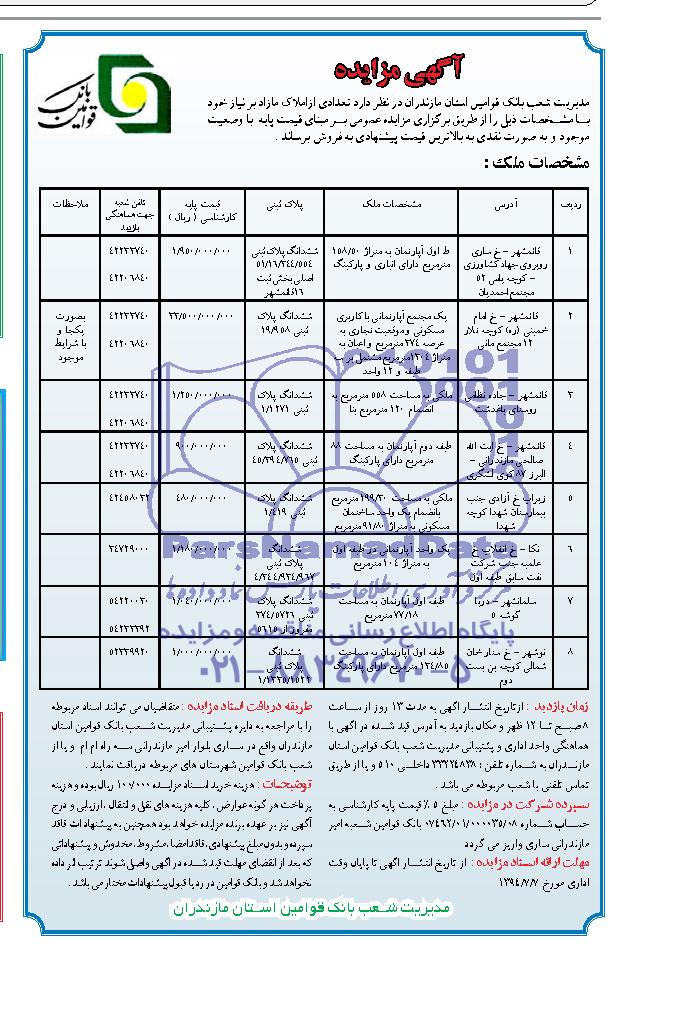 بانک
قوامین
آگهی مزایده
مدیریت شعب بانک قوامین استان مازندران در نظر دارد تعدادی ازاملاک مازاد بر نیاز خود
بـا مـشـخـصات ذیل را از طریق برگزاری مزایده عمومی بـر مبنای قیمت پایه با وضعیت
موجود و به صورت نقدی به بالاترین قیمت پیشنهادی به فروش برساند .
مشخصات ملک :
ردیف آدرس مشخصات ملک پلاک ثبتی قیمت پایه کارشناسی ( ریال ) تلفن شعبه جهت هماهنگی بازدید ملاحظات
۱ قائمشهر – خ ساری روبروی جهاد کشاورزی – کوچه یاس ۵۲ مجتمع احمدیان ط اول آپارتمان به متراژ ۱۵۸/۵۰ مترمربع دارای انباری و پارکینگ ششدانگ پلاک ثبتی ۵۱/۱۶/۳۴۴/۵۵۴ اصلی بخش ثبت ۱۶قائمشهر ۱/۹۵۰/۰۰۰/۰۰۰ ۴۲۲۳۳۷۴۰ ۴۲۲۰۶۸۴۰
۲ قائمشهر – خ امام خمینی (ره) کوچه تلار ۱۲ مجتمع مانی یک مجتمع آپارتمانی با کاربری مسکونی و موقعیت تجاری به عرصه ۳۷۴ مترمربع و اعیان به متراژ ۱۳۰۴مترمربع مشتمل بر طبقه و ۱۲ واحد ششدانگ پلاک ثبتی ۱۹/۹۵۸ ۳۳/۵۰۰/۰۰۰/۰۰۰ ۴۲۲۳۳۷۴۰ ۴۲۲۰۶۸۴۰ بصورت یکجا و با شرایط موجود
۳ قائمشهر – جاده نظامی روستای باغدشت ملکی به مساحت ۵۵۸ مترمربع به انضمام ۱۲۰ مترمربع بنا ششدانگ پلاک ثبتی ۱/۱۲۷۱ ۱/۲۵۰/۰۰۰/۰۰۰ ۴۲۲۳۳۷۴۰ ۴۲۲۰۶۸۴۰
۴ قائمشهر – خ آیت الله صالحی مازندرانی – البرز ۸۷ کوی لشکری طبقه دوم آپارتمان به مساحت ۸۸ مترمربع دارای پارکینگ ششدانگ پلاک ثبتی ۴۵/۳۹۴/۷۶۵ ۹۰۰/۰۰۰/۰۰۰ ۴۲۲۳۳۷۴۰ ۴۲۲۰۶۸۴۰
۵ زیراب خ آزادی جنب بیمارستان شهدا کوچه شهدا ملکی به مساحت ۱۹۹/۳۰ مترمربع بانضمام یک واحد ساختمان مسکونی به متراژ ۹۱/۸۰مترمربع ششدانگ پلاک ثبتی ۱/۴۱۹ ۴۸۰/۰۰۰/۰۰۰ ۴۲۴۵۸۰۳۲
۶ نکا – خ انقلاب خ علمیه جنب شرکت نفت سابق طبقه اول یک واحد آپارتمانی در طبقه اول به متراژ ۱۰۴ مترمربع ششدانگ پلاک ثبتی ۴/۳۴۴/۹۳۴/۹۶۷ ۱/۱۸۰/۰۰۰/۰۰۰ ۳۴۷۲۹۰۰۰
۷ سلمانشهر – دریا گوشه ۵ طبقه اول آپارتمان به مساحت ۷۷/۱۸مترمربع ششدانگ پلاک ثبتی ۳۷۴/۵۷۲۶ مفروز از ۵۶۱۵ ۱/۰۴۰/۰۰۰/۰۰۰ ۵۴۶۲۰۰۳۰ ۵۴۶۲۳۳۹۲
۸ نوشهر – خ ستار خان شمالی کوچه بن بست دوم طبقه اول آپارتمان به مساحت ۱۳۴/۸۵ مترمربع دارای پارکینگ ششدانگ پلاک ثبتی ۱/۱۳۳۵/۱۵۲۲ ۱/۰۰۰/۰۰۰/۰۰۰ ۵۲۳۳۹۹۲۰
ParsNamadData
مرکز فرآوری اطلاعات پارس نماد داده ها
پایگاه اطلاع رسانی مناقصه و مزایده
۰۲۱-۸۸۳۴۹۶۷۰-۵
زمان بازدید : ازتاریخ انتشـار آگهی به مدت ۱۳ روز از ساعت
۸صبح تـا ۱۲ ظهر و مکان بازدید به آدرس قید شـده در آگهی با
هماهنگی واحد اداری و پشتیبانی مدیریت شعب بانک قوامین استان
مازندران به شـماره تلفن : ۳۳۳۲۴۸۳۸ داخلـی ۵۱۰ و یا از طریق
تماس تلفنی با شعب مربوطه می باشد .
سپرده شرکت در مزایده : مبلغ ۵ ٪ قیمت پایه کارشناسی به
حسـاب شماره ۰۷۴۶۲/۰۱/۰۰۰۰۳۵/۰۸ بانک قوامین شـعبه امیر
مازندرانی ساری واریز می گردد
مهلت ارائه اسناد مزایده : از تاریخ انتشـار آگهی تا پایان وقت
اداری مورخ ۱۳۹۴/۷/۷
طریقه دریافت اسناد مزایده : متقاضیان می توانند اسناد مربوطه
را با مراجعه به دایره پشتیبانی مدیریت شـعب بانک قوامین استان
مازندران واقع در سـاری بلوار امیر مازندرانی سـه راه ام ام و یا از
شعب بانک قوامین شهرستان های مربوطه دریافت نمایند .
توضیحات : هزینه خرید اسـناد مزایـده ۱۰۰/۰۰۰ ریال بوده و هزینه
پرداخت هر گونه عوارض ، کلیه هزینه های نقل و انتقال ، ارزیابی و درج
آگهی نیز بر عهده برنده مزایده خواهد بود همچنین به پیشنهادات فاقد
سپرده و بدون مبلغ پیشنهادی ، فاقد امضا ، مشروط ، مخدوش و پیشنهاداتی
که بعد از انقضای مهلت قید شـده در آگهی واصل شوند ترتیب اثر داده
نخواهد شد و بانک قوامین در رد یا قبول پیشنهادات مختار می باشد .
مدیریت شـعب بانک قوامین اسـتان مازندران